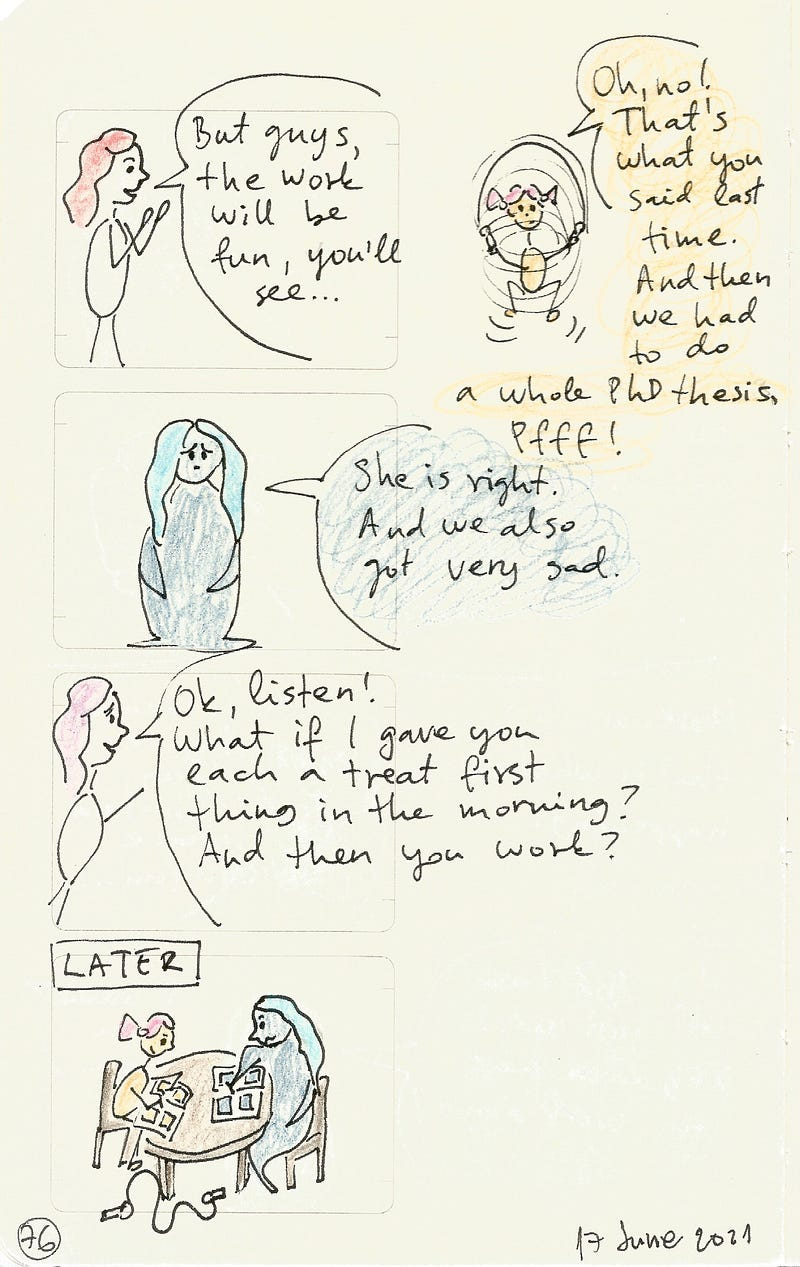 But guys,
the work
will be
fun, you'll
see...
Oh, no!
That's
what you
said last
time.
And then
we had
to do
a whole PhD thesis.
Pfff!
She is right.
And we also
got very sad.
Ok, listen!
What if I gave you
each a treat first
thing in the morning?
And then you work?
LATER
76
17 June 2021